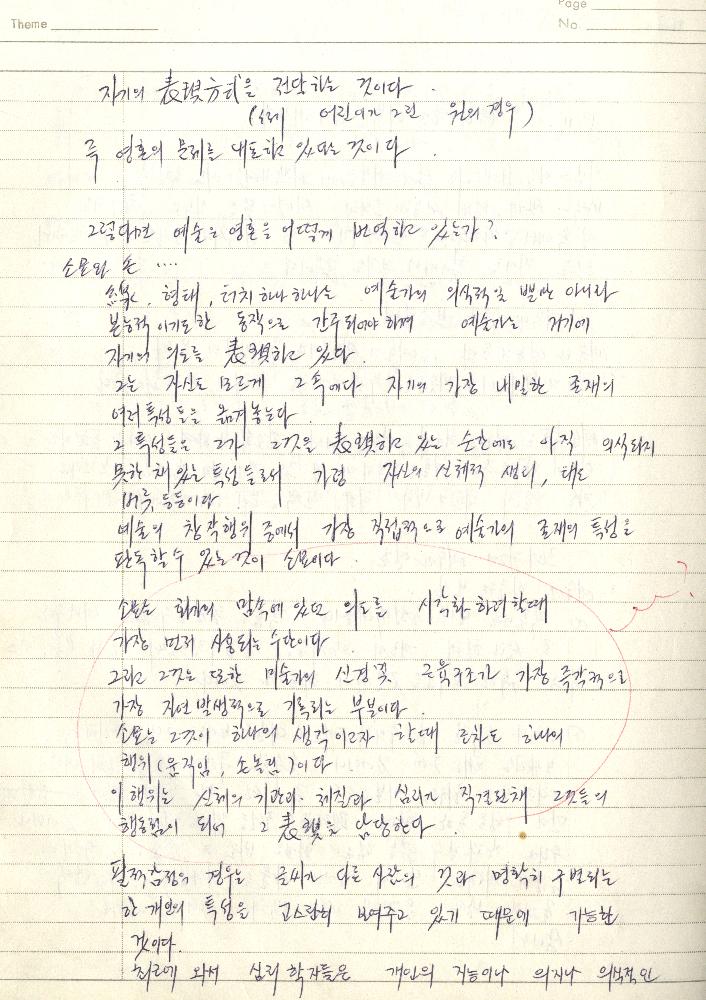 Theme
Page
No.
자기의 表現方式을 전달하는 것이다.
(실례 어린이가 그린 원의 경우)
즉 영혼의 문제를 내포하고 있다는 것이다.
그렇다면 예술은 영혼을 어떻게 번역하고 있는가?
소묘와 손 ....
線, 형태, 터치 하나 하나는 예술가의 의식적일 뿐만 아니라
본능적이기도 한 동작으로 간주되어야 하며 예술가는 거기에
자기의 의도를 表現하고 있다.
그는 자신도 모르게 그 속에다 자기의 가장 내밀한 존재의
여러 특성들을 옮겨놓는다.
그 특성들은 그가 그것을 表現하고 있는 순간에도 아직 의식되지
못한 채 있는 특성들로서 가령 자신의 신체적 생리, 태도
버릇, 등등이다
예술의 창작행위 중에서 가장 직접적으로 예술가의 존재의 특성을
판독할 수 있는 것이 소묘이다
소묘는 화가의 맘속에 있던 의도를 시각화 하려할때
가장 먼저 사용되는 수단이다.
그리고 그것은 또한 미술가의 신경 및 근육구조가 가장 즉각적으로
가장 자연발생적으로 기록되는 부분이다.
소묘는 그것이 하나의 생각이고자 할때 조차도 하나의
행위(움직임, 손놀림)이다
이 행위는 신체의 기관과 체질과 심리가 직결된채 그것들의
행동력이 되어 그 表現을 담당한다.
필적감정의 경우는 글씨가 다른 사람의 것과 명확히 구별되는
한 개인의 특성을 고스란히 보여주고 있기 때문에 가능한
것이다.
최근에 와서 심리학자들은 개인의 지능이나 의지나 의식적인